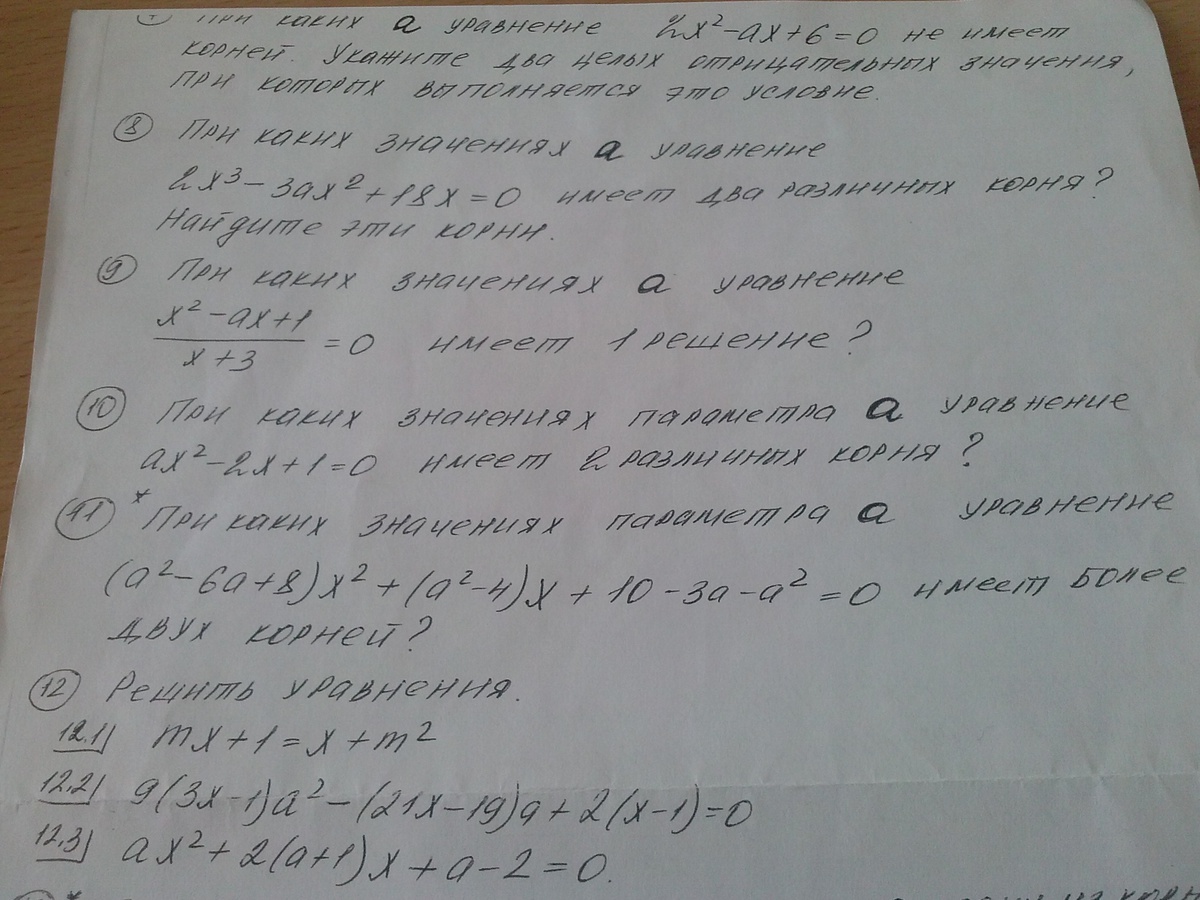 ⑦ При каких a уравнение 2x² - ax + 6 = 0 не имеет
корней. Укажите два целых отрицательных значения,
при которых выполняется это условие.
⑧ При каких значениях a уравнение
2x³ - 3ax² + 18x = 0 имеет два различных корня?
Найдите эти корни.
⑨ При каких значениях a уравнение
(x² - ax + 1)/(x + 3) = 0 имеет 1 решение?
⑩ При каких значениях параметра a уравнение
ax² - 2x + 1 = 0 имеет 2 различных корня?
⑪* При каких значениях параметра a уравнение
(a² - 6a + 8)x² + (a² - 4)x + 10 - 3a - a² = 0 имеет более
двух корней?
⑫ Решить уравнения.
12.1) mx + 1 = x + m²
12.2) 9(3x - 1)a² - (21x - 19)a + 2(x - 1) = 0
12.3) ax² + 2(a + 1)x + a - 2 = 0.